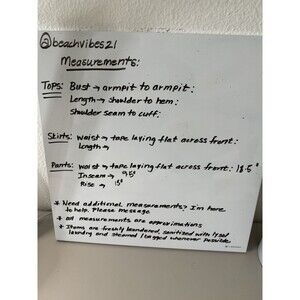 @beachvibes21
Measurements:
Tops: Bust → armpit to armpit:
Length → shoulder to hem:
Shoulder seam to cuff:
Skirts: Waist → tape laying flat across front:
Length →
Pants: Waist → tape laying flat across front: 18.5"
Inseam → 9.5"
Rise → 15"
* Need additional measurements? I'm here
to help. Please message
* All measurements are approximations
* Items are freshly laundered, sanitized with lysol
laundry and steamed / bagged whenever possible